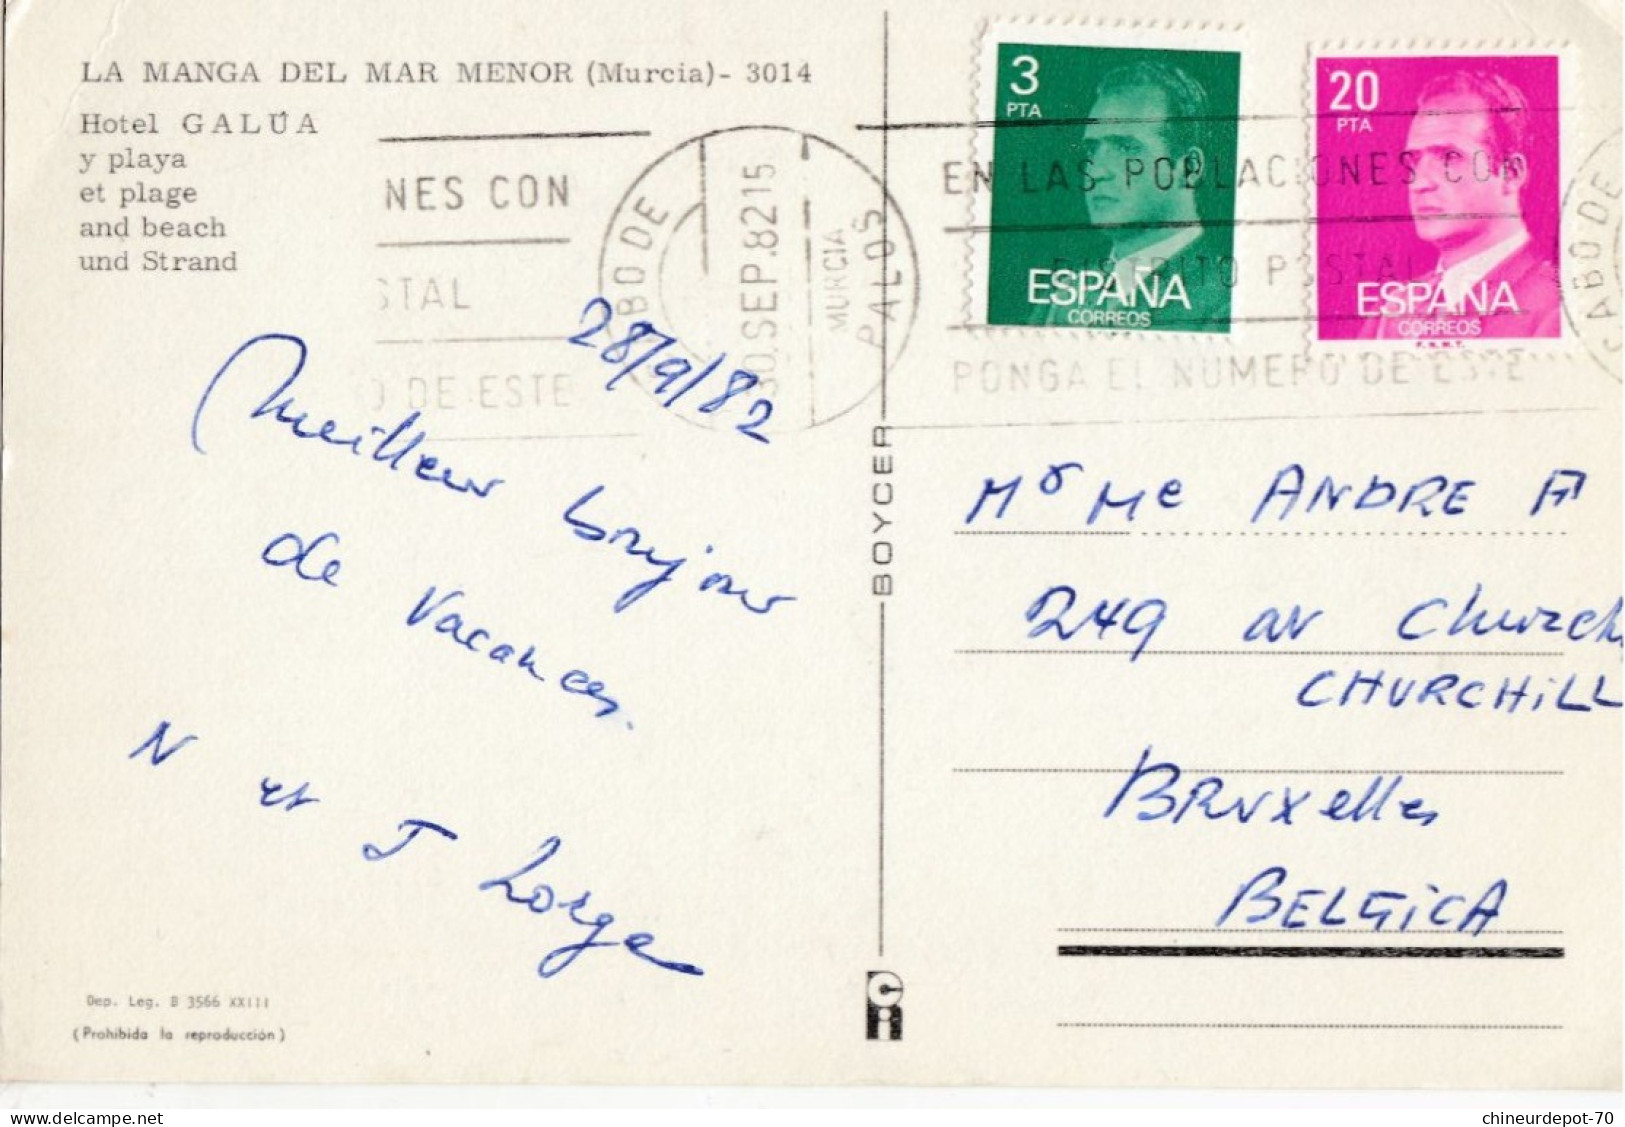 LA MANGA DEL MAR MENOR (Murcia) - 3014
Hotel GALÚA
y playa
et plage
and beach
und Strand
NES CON
STAL
O DE ESTE
BO DE
PALOS
MURCIA
30.SEP.8215
EN LAS POBLACIONES CON
DISTRITO POSTAL
PONGA EL NUMERO DE ESTE
CABO DE
3
PTA
ESPAÑA
CORREOS
20
PTA
ESPAÑA
CORREOS
F.N.M.T.
28/9/82
Meilleur bonjour
de vacances.
N et J Lorge
BOYCER
Mr Me ANDRE
249 av Church
CHURCHiLL
BRuxelles
BELGiCA
Dep. Leg. B 3566 XXIII
(Prohibida la reproducción)
chineurdepot-70